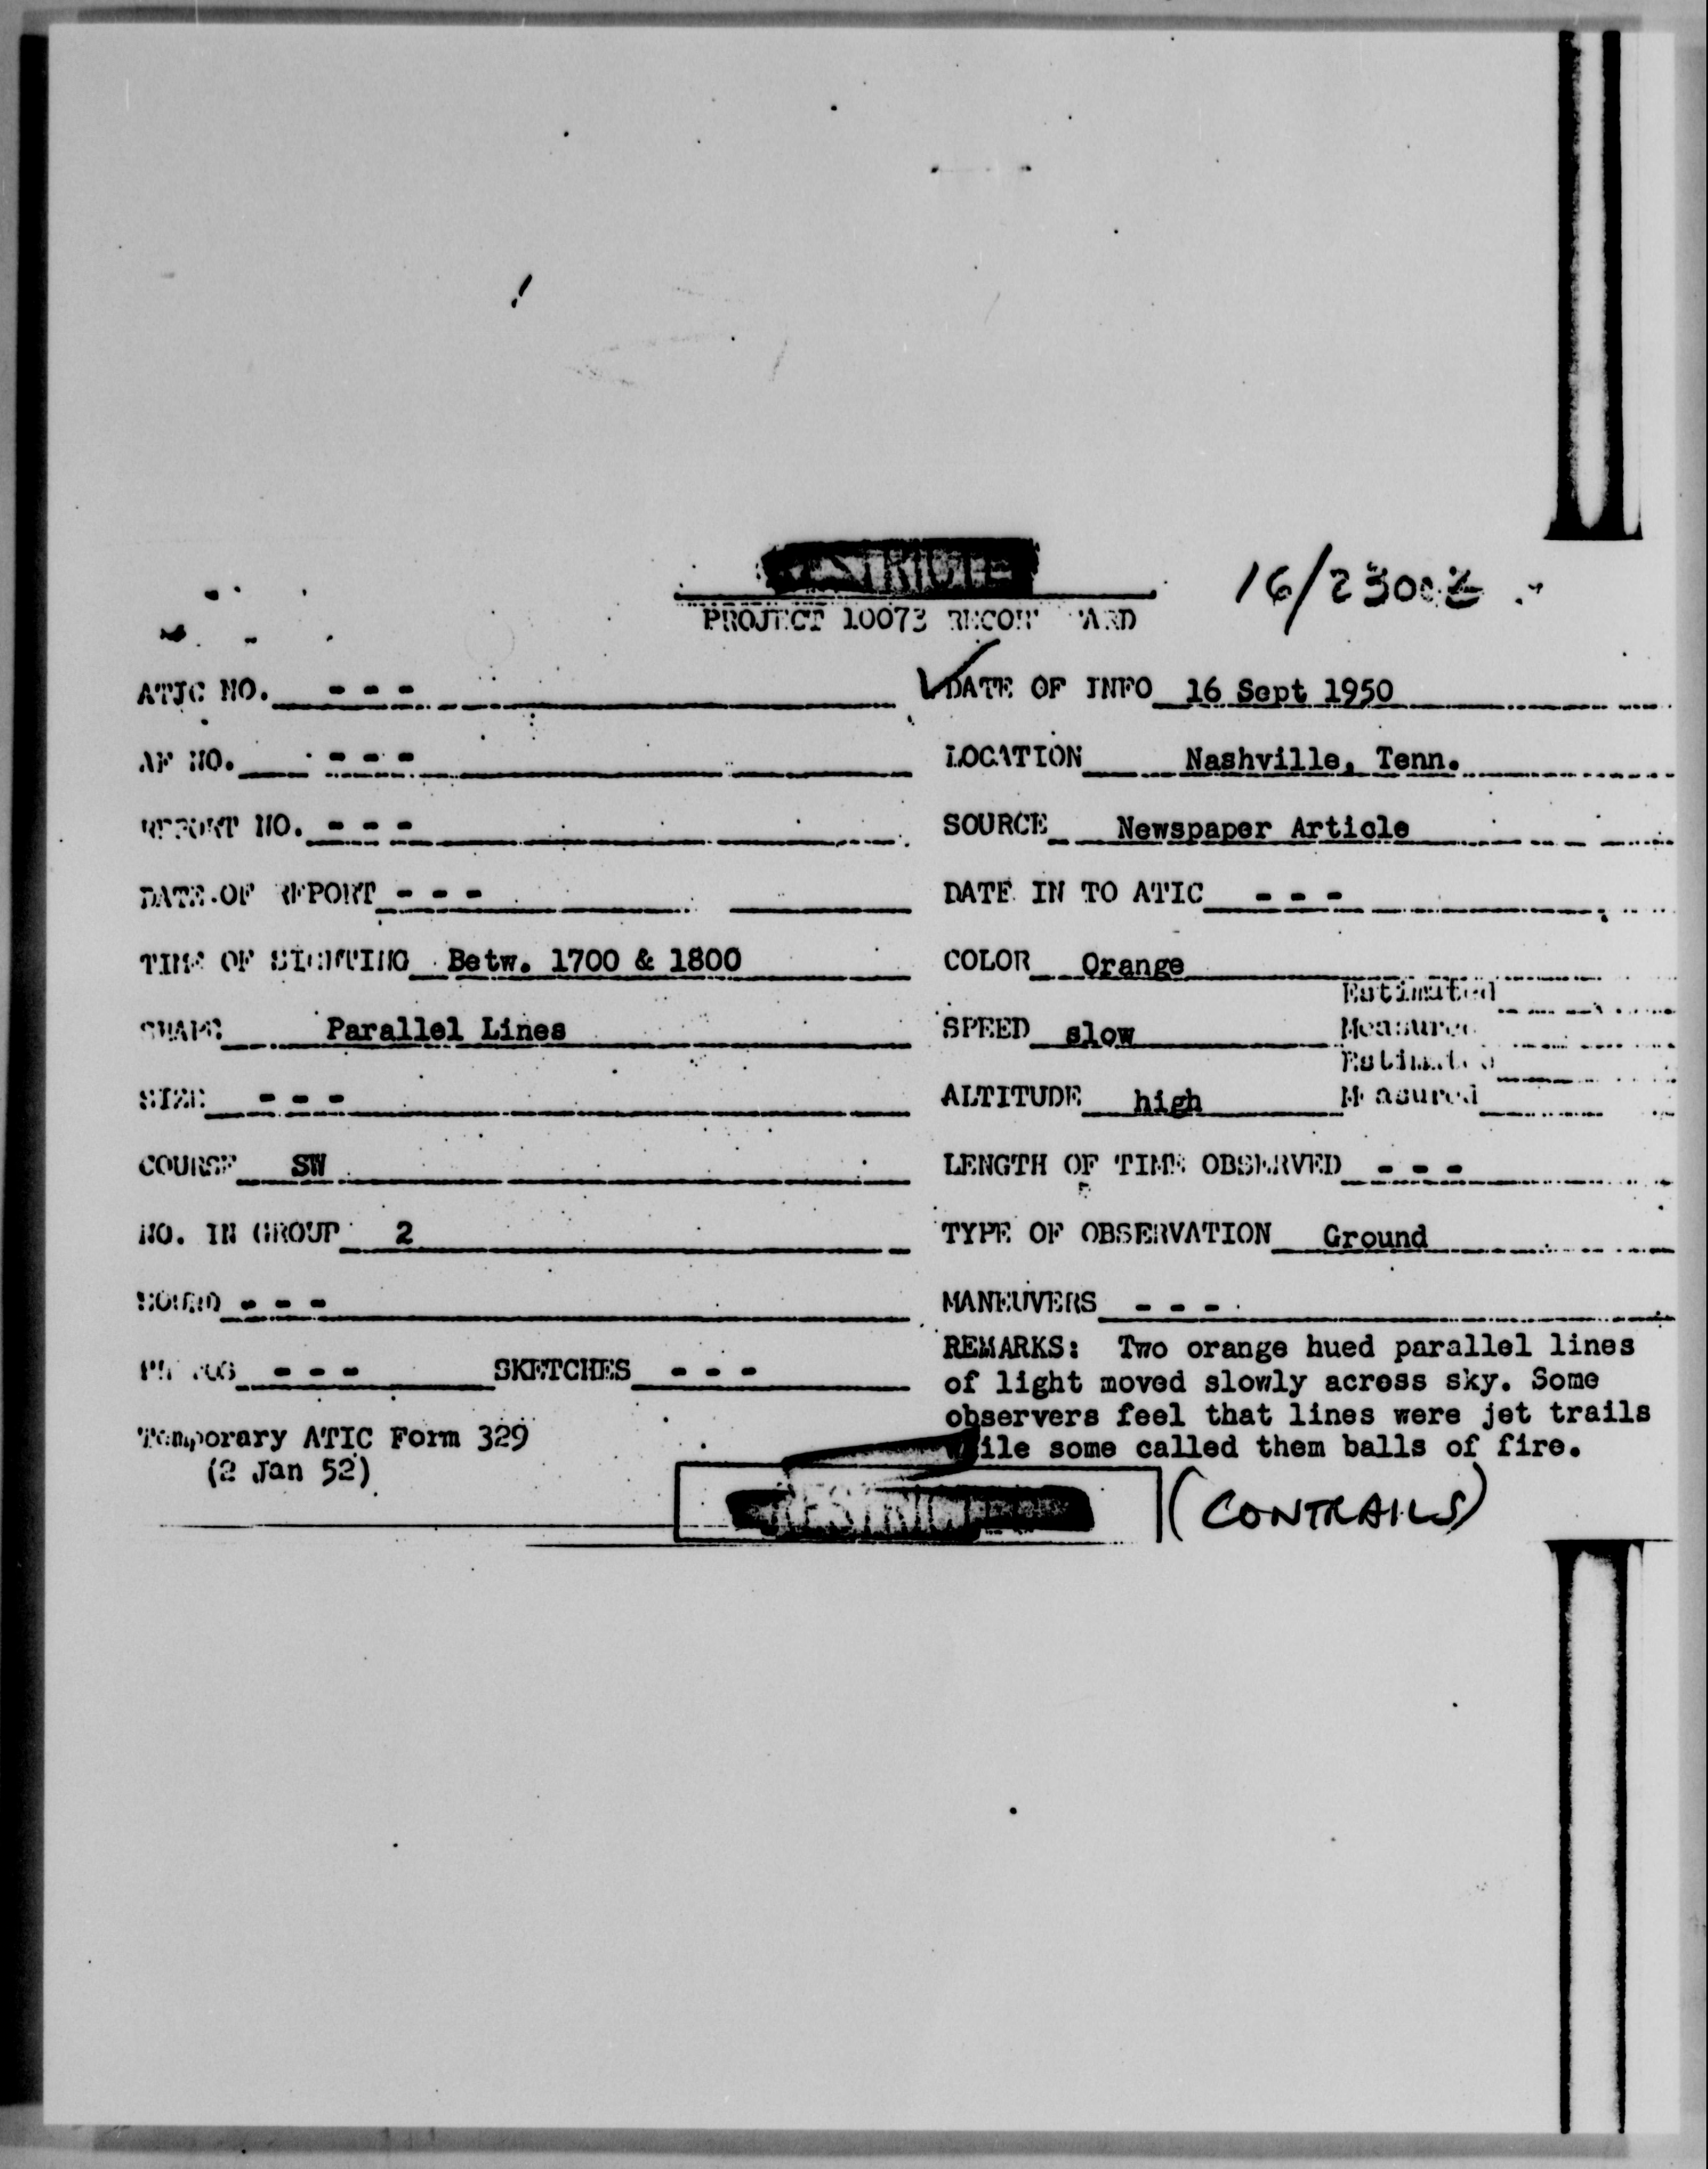 PROJECT 10073 RECORD CARD
16/2300Z
ATIC NO. - - -
DATE OF INFO 16 Sept 1950
AF NO. - - -
LOCATION Nashville, Tenn.
REPORT NO. - - -
SOURCE Newspaper Article
DATE OF REPORT - - -
DATE IN TO ATIC - - -
TIME OF SIGHTING Betw. 1700 & 1800
COLOR Orange
SHAPE Parallel Lines
SPEED slow
Estimated
Measured
SIZE - - -
ALTITUDE high
Estimated
Measured
COURSE SW
LENGTH OF TIME OBSERVED - - -
NO. IN GROUP 2
TYPE OF OBSERVATION Ground
SOUND - - -
MANEUVERS - - -
PHOTOS - - - SKETCHES - - -
REMARKS: Two orange hued parallel lines
of light moved slowly across sky. Some
observers feel that lines were jet trails
while some called them balls of fire.
Temporary ATIC Form 329
(2 Jan 52)
(CONTRAILS)